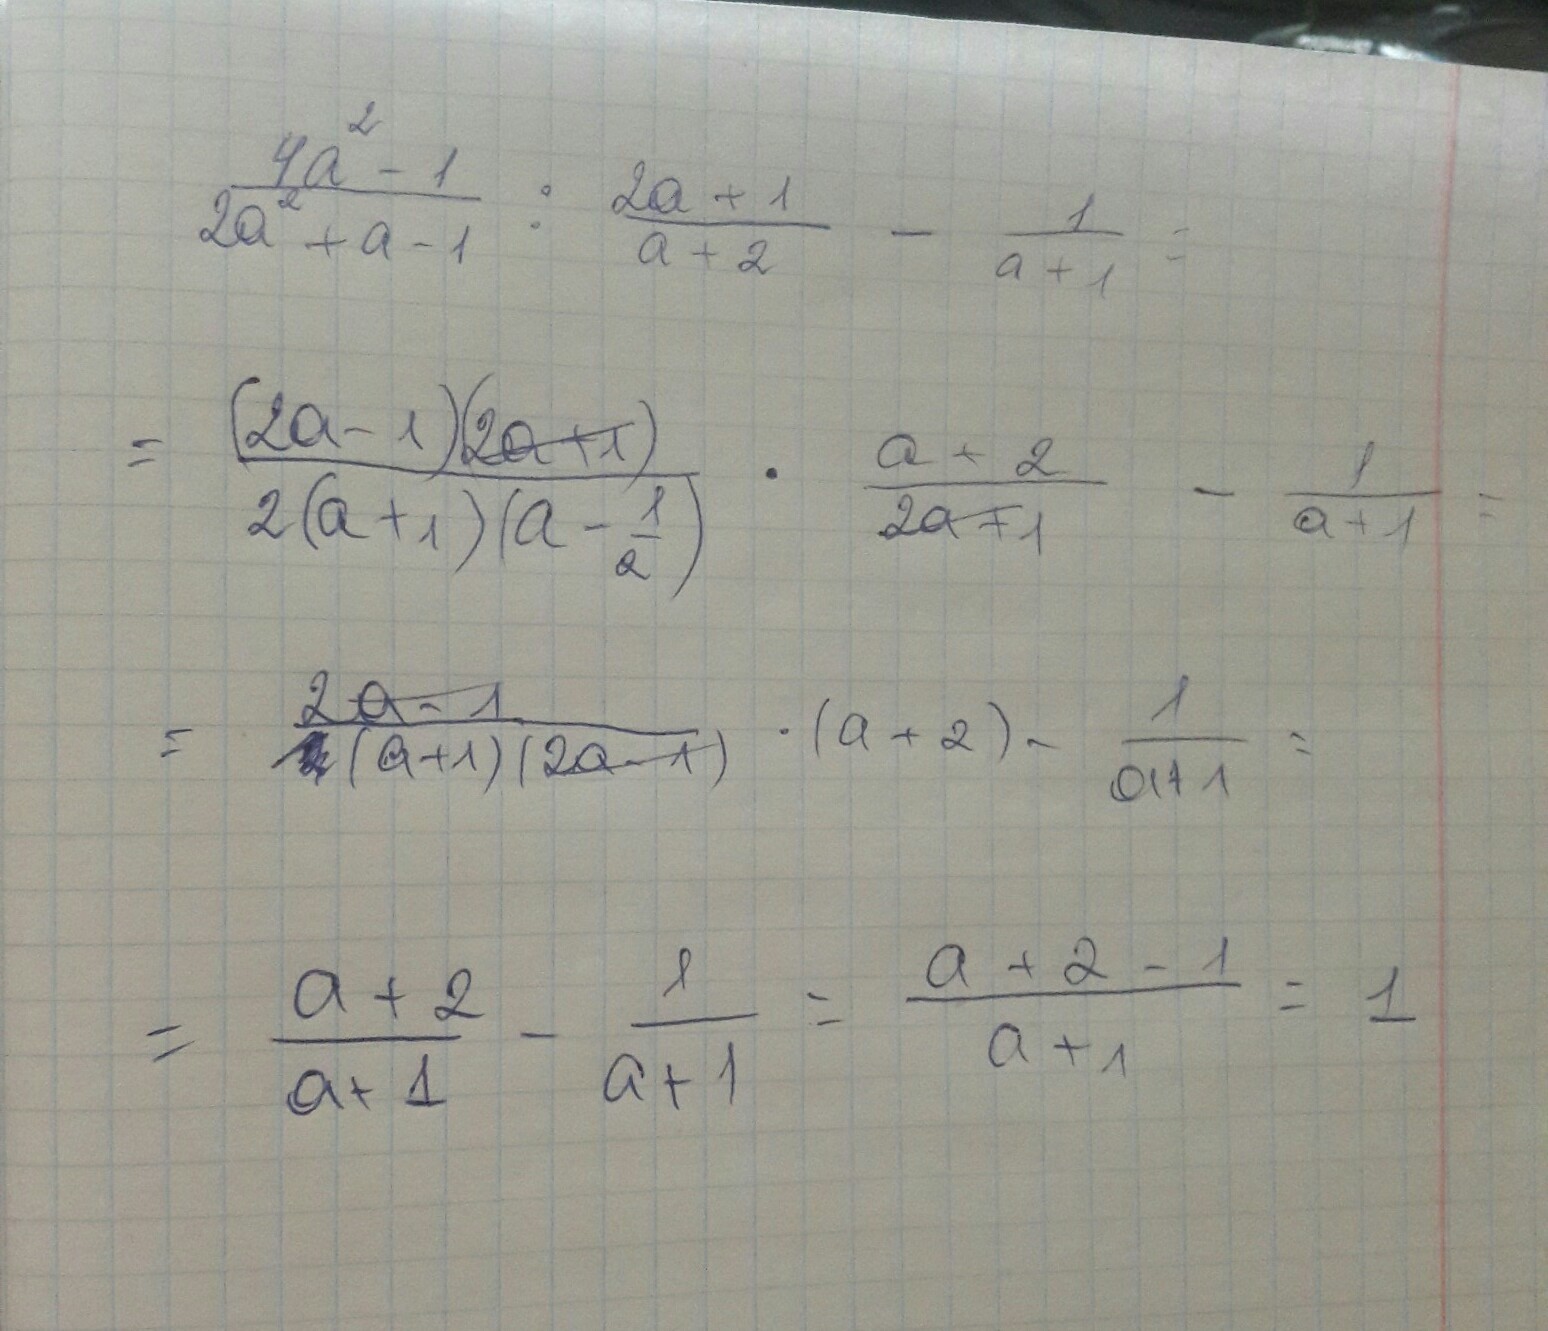 (4a² - 1)/(2a² + a - 1) : (2a + 1)/(a + 2) - 1/(a + 1) =
= ((2a - 1)(2a + 1))/(2(a + 1)(a - 1/2)) · (a + 2)/(2a + 1) - 1/(a + 1) =
= (2a - 1)/((a + 1)(2a - 1)) · (a + 2) - 1/(a + 1) =
= (a + 2)/(a + 1) - 1/(a + 1) = (a + 2 - 1)/(a + 1) = 1